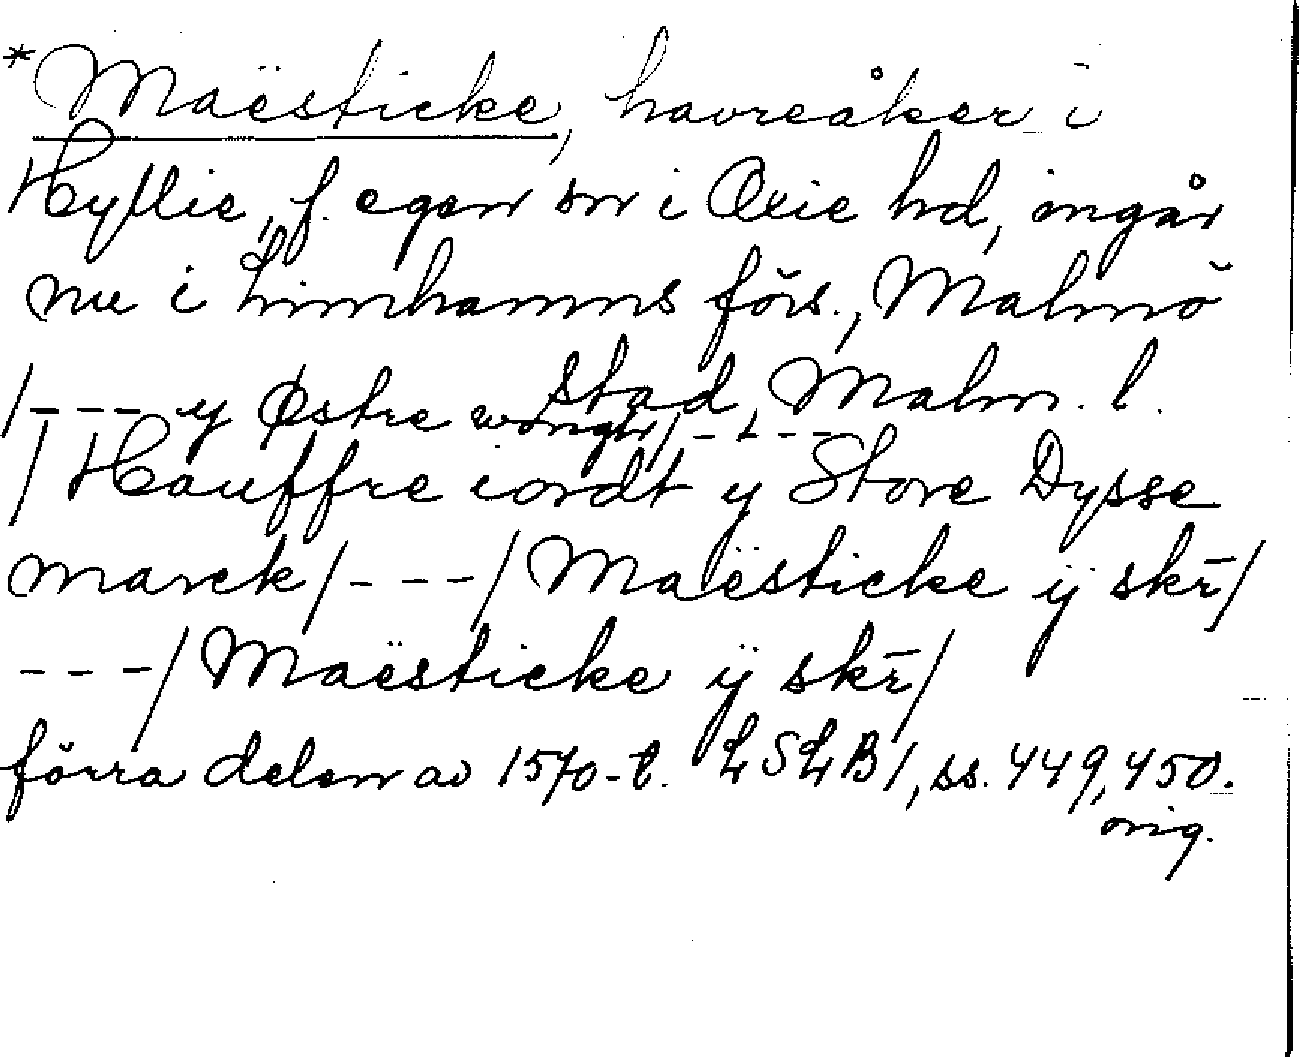 *Maësticke, havreåker i
Hyllie, f. egen sn i Oxie hd, ingår
nu i Limhamns förs., Malmö
stad, Malm. l.
/--- y Østre wongh/---
/ Hauffre iordt y Store Dysse
marck/---/ Maësticke ÿ skr̄/
---/ Maësticke ÿ skr̄/
förra delen av 1570-t. LSLB1, ss. 449, 450.
orig.